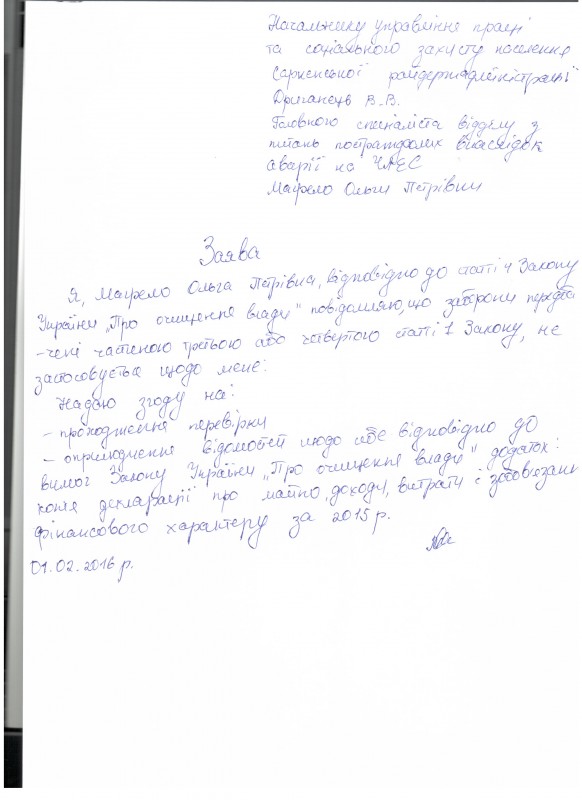 Начальнику управління праці
та соціального захисту населення
Сарненської райдержадміністрації
Дриганець В.В.
Головного спеціаліста відділу з
питань постраждалих внаслідок
аварії на ЧАЕС
Ольги Петрівни
Заява
Я, Ольга Петрівна, відповідно до статті 4 Закону
України „Про очищення влади" повідомляю, що заборони передба
-чені частиною третьою або четвертою статті 1 Закону, не
застосовується щодо мене:
Надаю згоду на:
- проходження перевірки
- оприлюднення відомостей щодо себе відповідно до
вимог Закону України „Про очищення влади" додаток:
копія декларації про майно, доходи, витрати і зобов'язання
фінансового характеру за 2015 р.
01.02.2016 р.